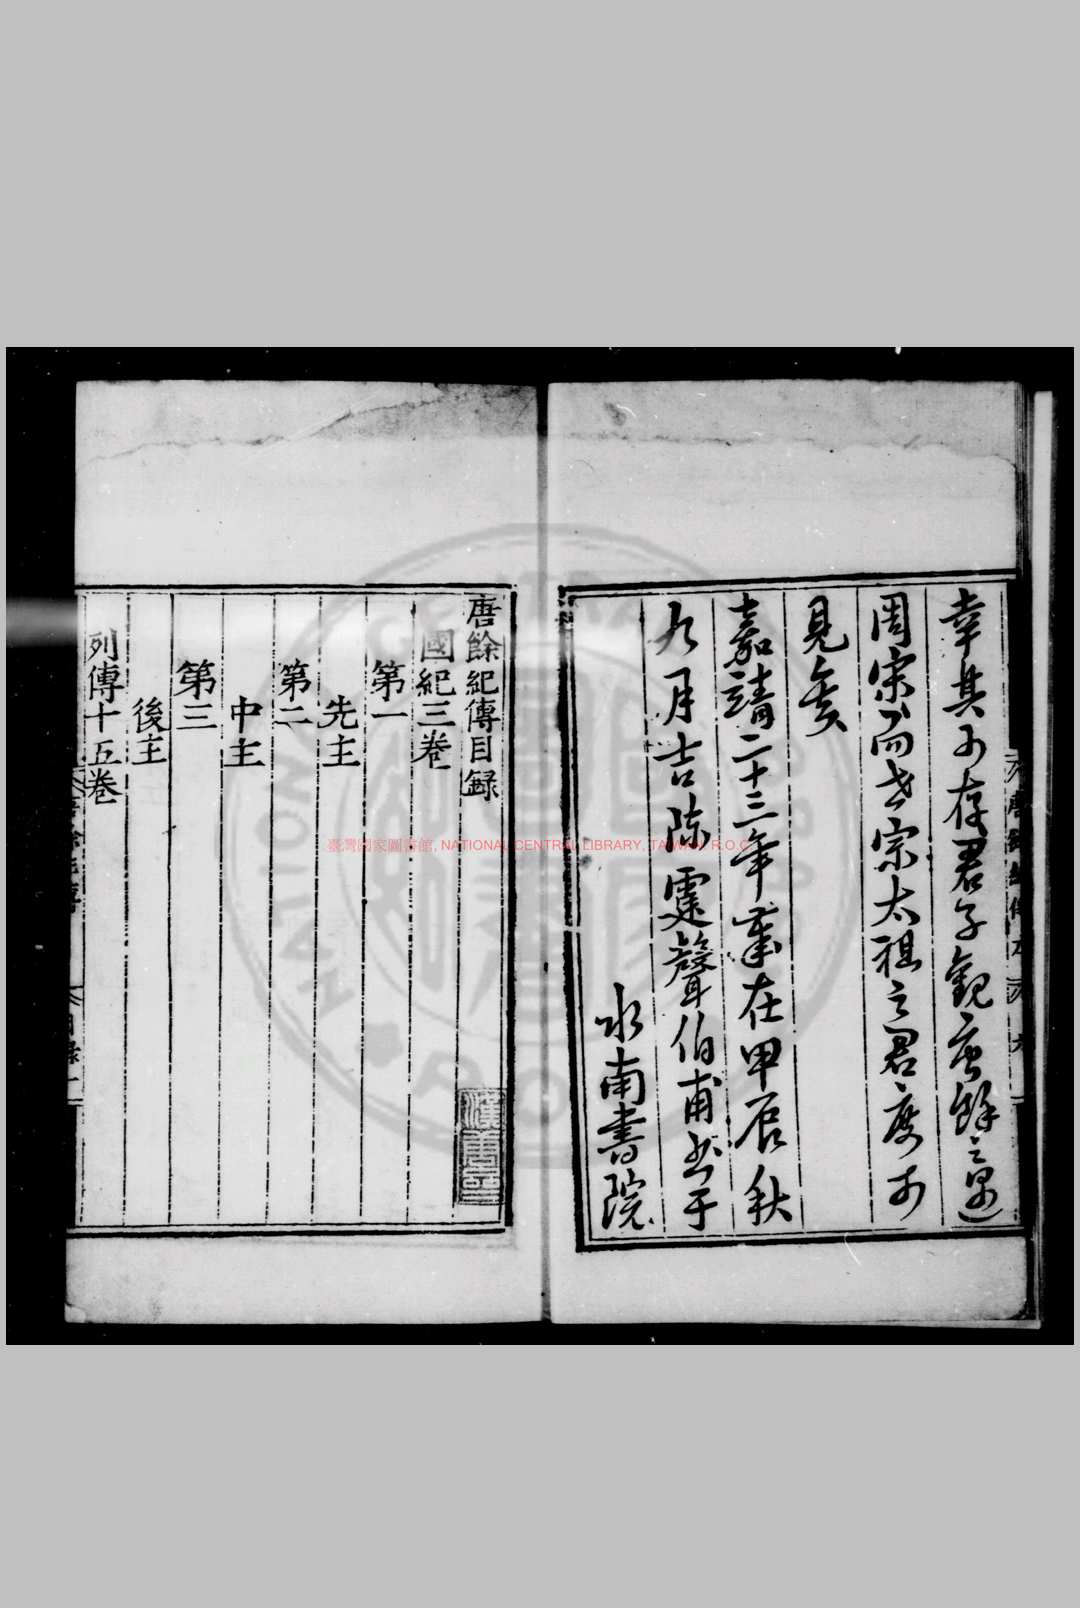 幸其可存君子觀唐餘之遇
周宋而世宗太祖之君度可
見矣
嘉靖二十三年歲在甲辰秋
九月吉陳霆聲伯甫書于
水南書院
唐餘紀傳目録
國紀三卷
第一
先主
第二
中主
第三
後主
列傳十五卷
臺灣國家圖書館, NATIONAL CENTRAL LIBRARY, TAIWAN, R.O.C